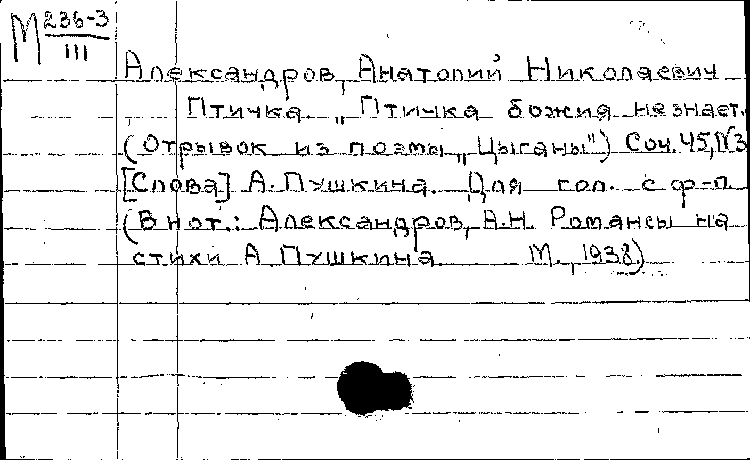 М 236-3
III
Александров, Анатолий Николаевич
Птичка. „Птичка божия не знает.
(Отрывок из поэмы „Цыганы") Соч. 45, №3
[Слова] А. Пушкина. Для гол. с ф-п.
(В нот.: Александров, А.Н. Романсы на
стихи А Пушкина. М., 1938.)